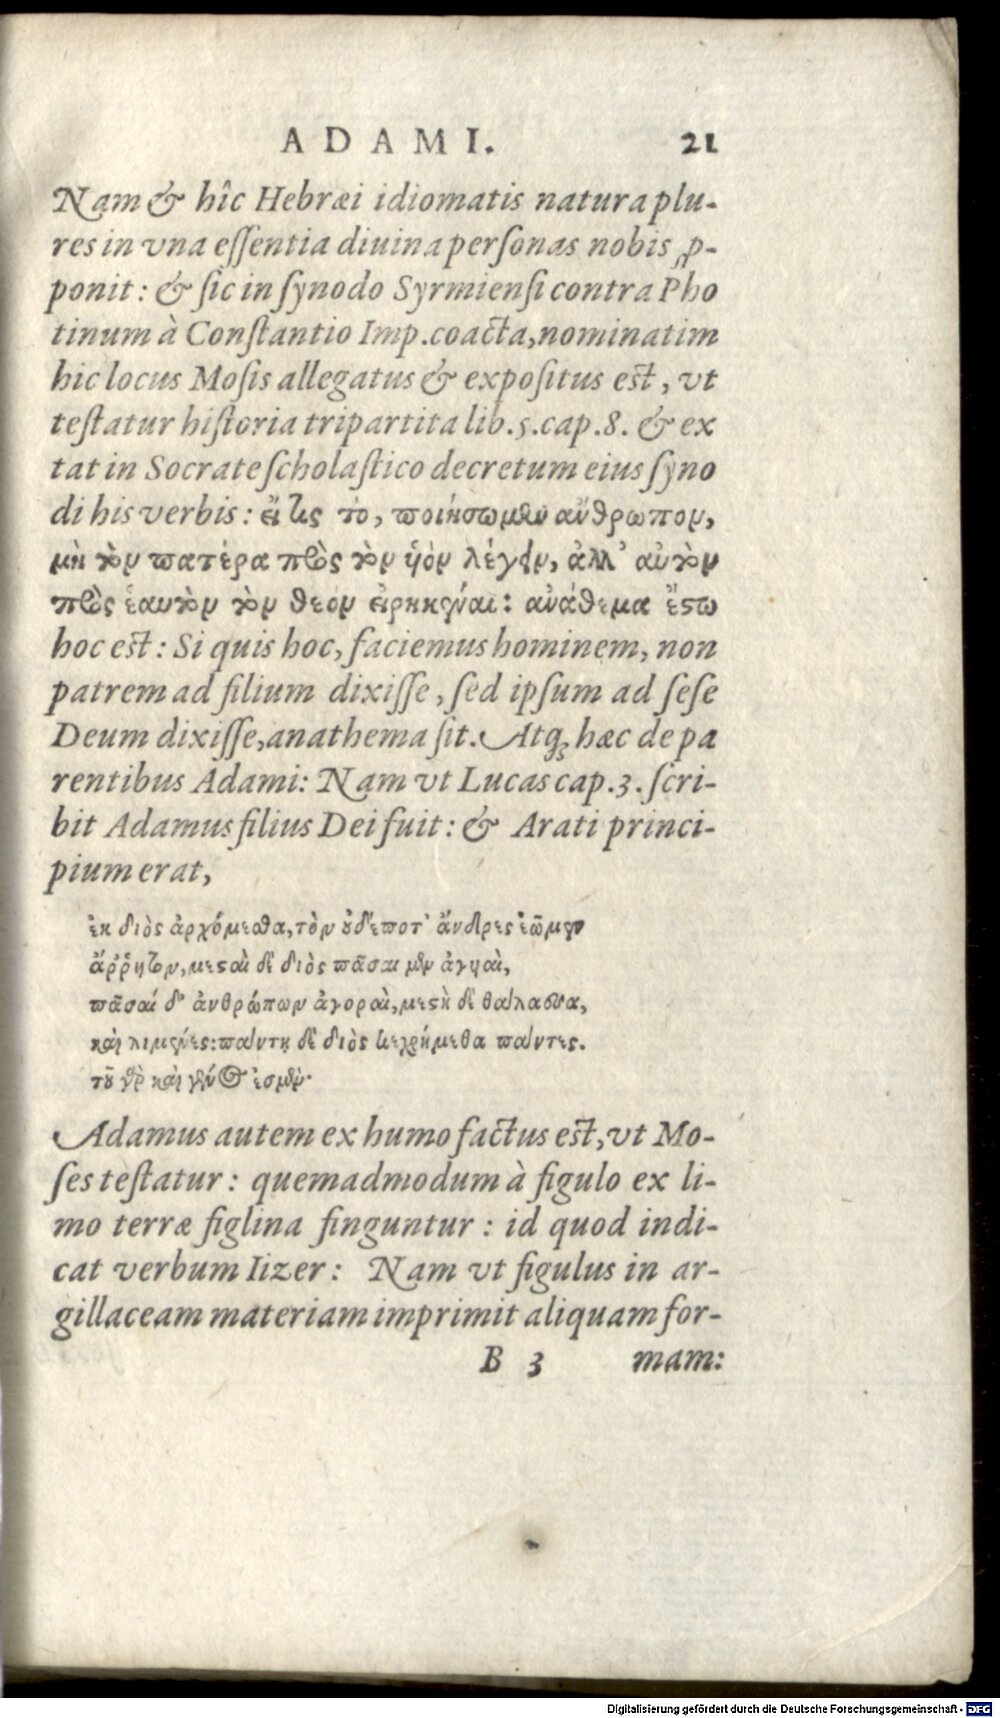 ADAMI. 21
Nam & hîc Hebræi idiomatis natura plu-
res in vna essentia diuina personas nobis ꝓ-
ponit: & sic in synodo Syrmiensi contra Pho
tinum à Constantio Imp. coacta, nominatim
hic locus Mosis allegatus & expositus est, vt
testatur historia tripartita lib. 5. cap. 8. & ex
tat in Socrate scholastico decretum eius syno
di his verbis: εἴ τις τὸ, ποιήσωμεν ἄνθρωπον,
μὴ τὸν πατέρα πρὸς τὸν ὑὸν λέγειν, ἀλλ' αὐτὸν
πρὸς ἑαυτὸν τὸν θεον εἰρηκέναι: ανάθεμα ἔστω
hoc est: Si quis hoc, faciemus hominem, non
patrem ad filium dixisse, sed ipsum ad sese
Deum dixisse, anathema sit. Atq; hæc de pa
rentibus Adami: Nam vt Lucas cap. 3. scri-
bit Adamus filius Dei fuit: & Arati princi-
pium erat,
ἐκ διὸς ἀρχόμεσθα, τὸν οὐδέποτ' ἄνδρες ἐῶμεν
ἄῤῥητον, μεσταὶ δὲ διὸς πᾶσαι μὲν ἀγυιαὶ,
πᾶσαί δ' ἀνθρώπων ἀγοραὶ, μεστὴ δὲ θάλασσα,
καὶ λιμένες: πάντη δὲ διὸς κεχρήμεθα πάντες.
τοῦ γὰρ καὶ γένος ἐσμὲν·
Adamus autem ex humo factus est, vt Mo-
ses testatur: quemadmodum à figulo ex li-
mo terræ figlina finguntur: id quod indi-
cat verbum Iizer: Nam vt figulus in ar-
gillaceam materiam imprimit aliquam for-
B 3 mam:
Digitalisierung gefördert durch die Deutsche Forschungsgemeinschaft - DFG